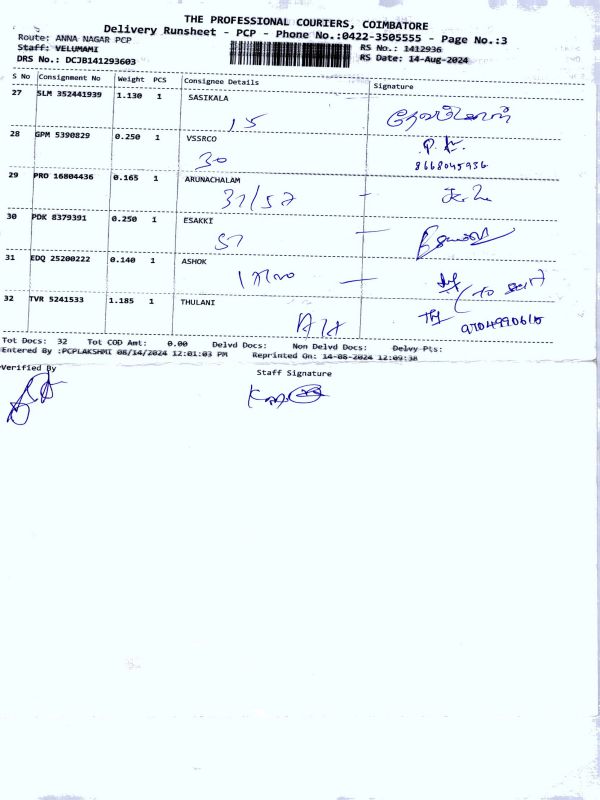 THE PROFESSIONAL COURIERS, COIMBATORE
Delivery Runsheet - PCP - Phone No.:0422-3505555 - Page No.:3
Route: ANNA NAGAR PCP
RS No.: 1412936
Staff: VELUMAMI
RS Date: 14-Aug-2024
DRS No.: DCJB141293603
S No Consignment No Weight PCS Consignee Details Signature
27 SLM 352441939 1.130 1 SASIKALA
15
28 GPM 5390829 0.250 1 VSSRCO
30
8668045936
29 PRO 16804436 0.165 1 ARUNACHALAM
31/57
30 PDK 8379391 0.250 1 ESAKKI
57
31 EDQ 25200222 0.140 1 ASHOK
32 TVR 5241533 1.185 1 THULANI
9704990615
Tot Docs: 32 Tot COD Amt: 0.00 Delvd Docs: Non Delvd Docs: Delvy Pts:
Entered By :PCPLAKSHMI 08/14/2024 12:01:03 PM Reprinted On: 14-08-2024 12:09:38
Verified By
Staff Signature